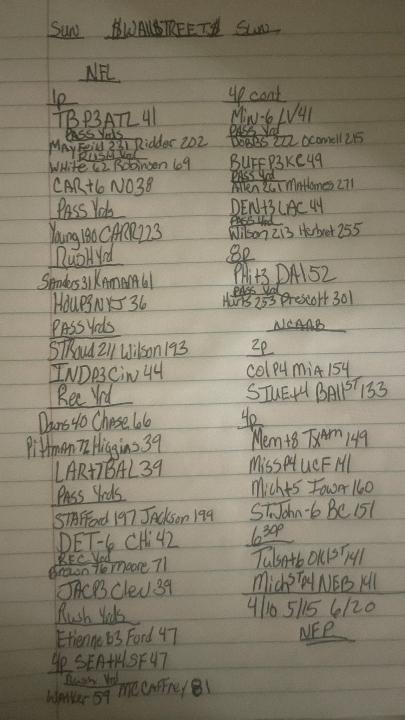 Sun $WALL$TREET$ Sun
NFL
1p
TBP3ATL 41
PASS Yrds
Mayfeild 231 Ridder 202
RUSH Yrd
White 62 Robinson 69
CAR+6 NO38
PASS Yrds
Young 180 CARR 223
RusH Yrd
Sanders 31 Kamara 61
HOUP3NYJ 36
PASS Yrds
STRoud 211 Wilson 193
INDP3Cin 44
Rec Yrd
Downs 40 Chase 66
Pittman 72 Higgins 39
LAR+7BAL 39
PASS Yrds
STAFFord 197 Jackson 199
DET-6 CHi 42
REC Yrd
Brown 76 Moore 71
JACP3 Clev 39
Rush Yrds
Etienne 63 Ford 47
4p SEA+14SF 47
Rush Yrd
Walker 59 McCAFFrey 81
4p cont
Min-6 LV41
PASS Yrd
Dobbs 222 Oconnell 215
BUFFP3KC 49
PASS Yrd
Allen 261 Mahomes 271
DEN+3 LAC 44
PASS Yrd
Wilson 213 Herbret 255
8p
PHi+3 DAl 52
PASS Yrd
Hurts 253 Prescott 301
NCAAB
2p
Col P4 Mia 154
SIUE+4 Ball ST 133
4p
Mem+8 TxAm 149
Miss P4 UCF 141
Mich+5 Iowa 160
ST. John-6 BC 151
6 30p
Tulsa+6 OKl ST 141
Mich ST P4 NEB 141
4/10 5/15 6/20
NFP